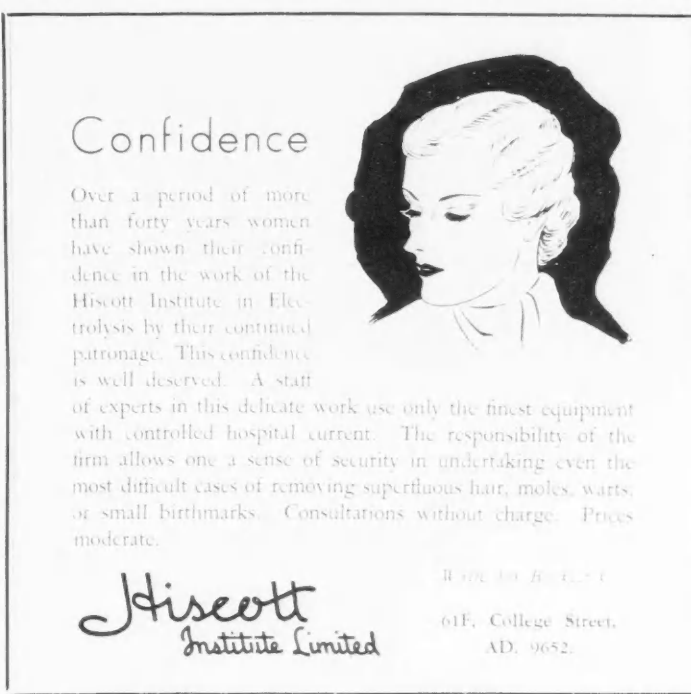 Confidence
Over a period of more
than forty years women
have shown their confi-
dence in the work of the
Hiscott Institute in Elec-
trolysis by their continued
patronage. This confidence
is well deserved. A staff
of experts in this delicate work use only the finest equipment
with controlled hospital current. The responsibility of the
firm allows one a sense of security in undertaking even the
most difficult cases of removing superfluous hair, moles, warts,
or small birthmarks. Consultations without charge. Prices
moderate.
Hiscott
Institute Limited
Write for
61F, College Street,
AD. 9652.